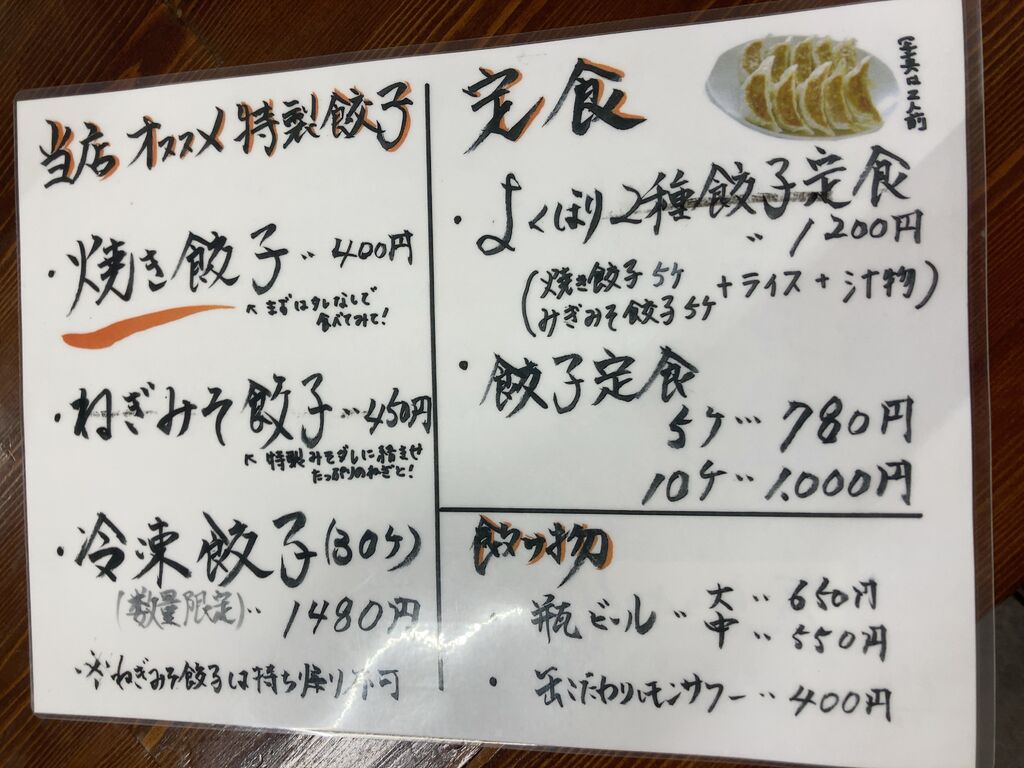 当店 オススメ 特製餃子
・焼き餃子‥400円
↖まずはタレなしで
食べてみて!
・ねぎみそ餃子…450円
↖特製みそダレに絡ませ
たっぷりのねぎと!
・冷凍餃子(30ケ)
(数量限定)‥1480円
※ねぎみそ餃子は持ち帰り不可
定食
写真は二人前
・よくばり2種餃子定食
‥1200円
(焼き餃子5ケ
ねぎみそ餃子5ケ +ライス+汁物)
・餃子定食
5ケ…780円
10ケ…1.000円
飲み物
・瓶ビール‥大‥650円
中‥550円
・缶こだわりレモンサワー‥400円